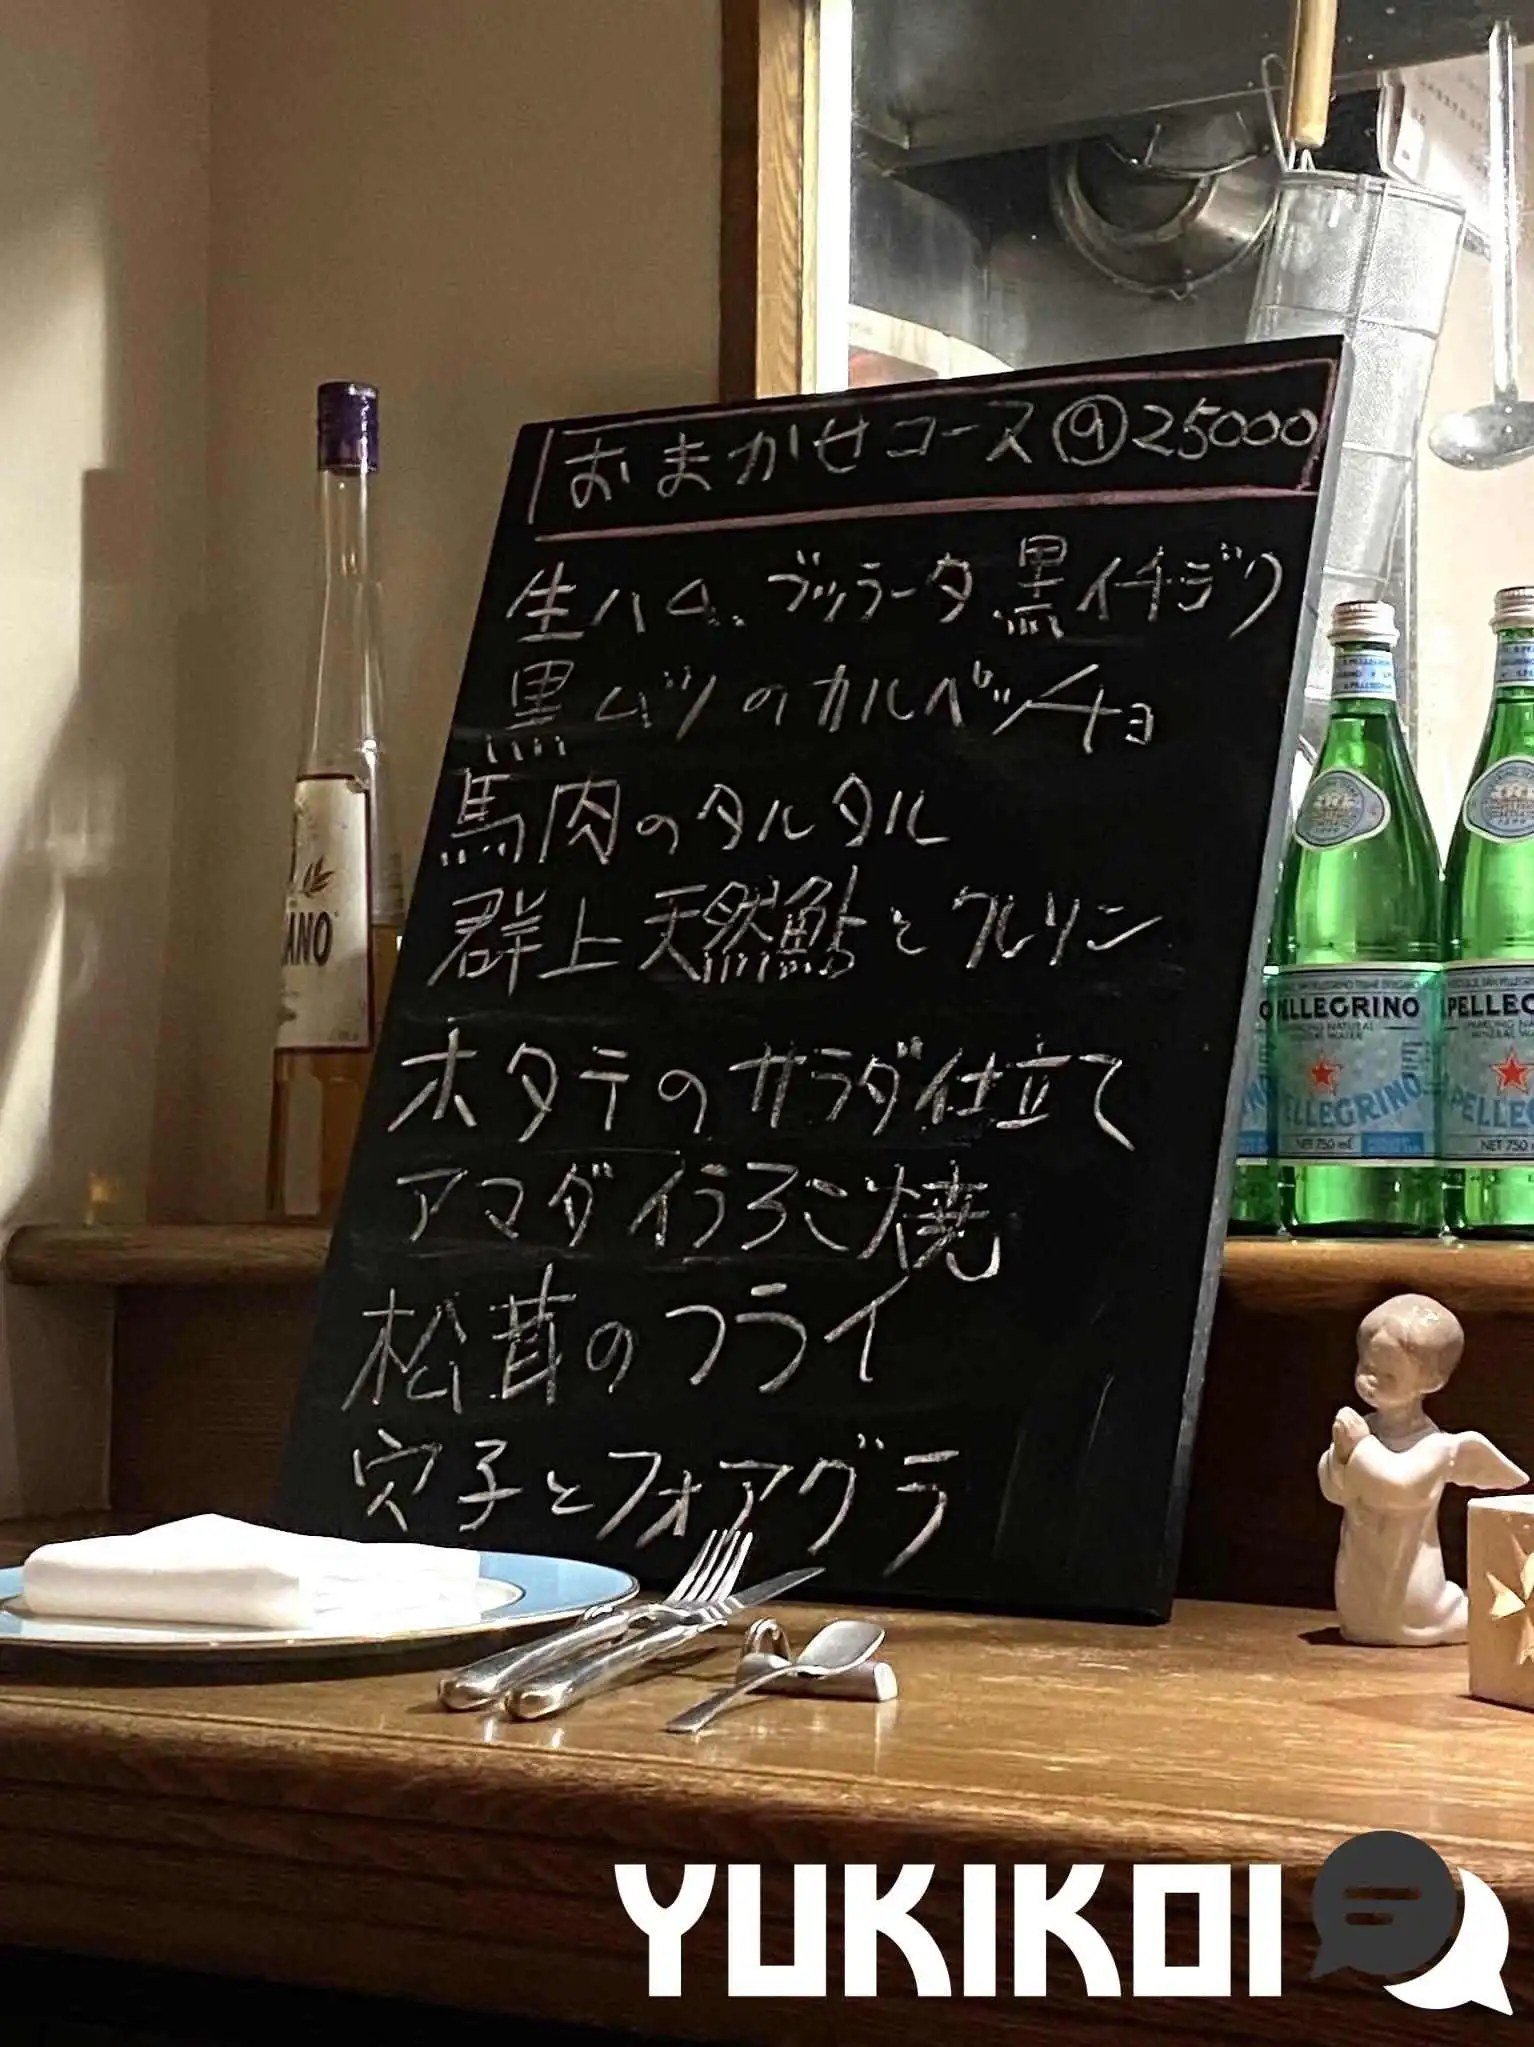 おまかせコース⑨25000
生ハム、ブッラータ黒イチヂク
黒ムツのカルペッチョ
馬肉のタルタル
群上天然鮎とクルソン
ホタテのサラダ仕立て
アマダイうろこ焼
松茸のフライ
穴子とフォアグラ
ANO
PELLEGRINO
PELLEGRINO
NET 750 mL
YUKIKOI